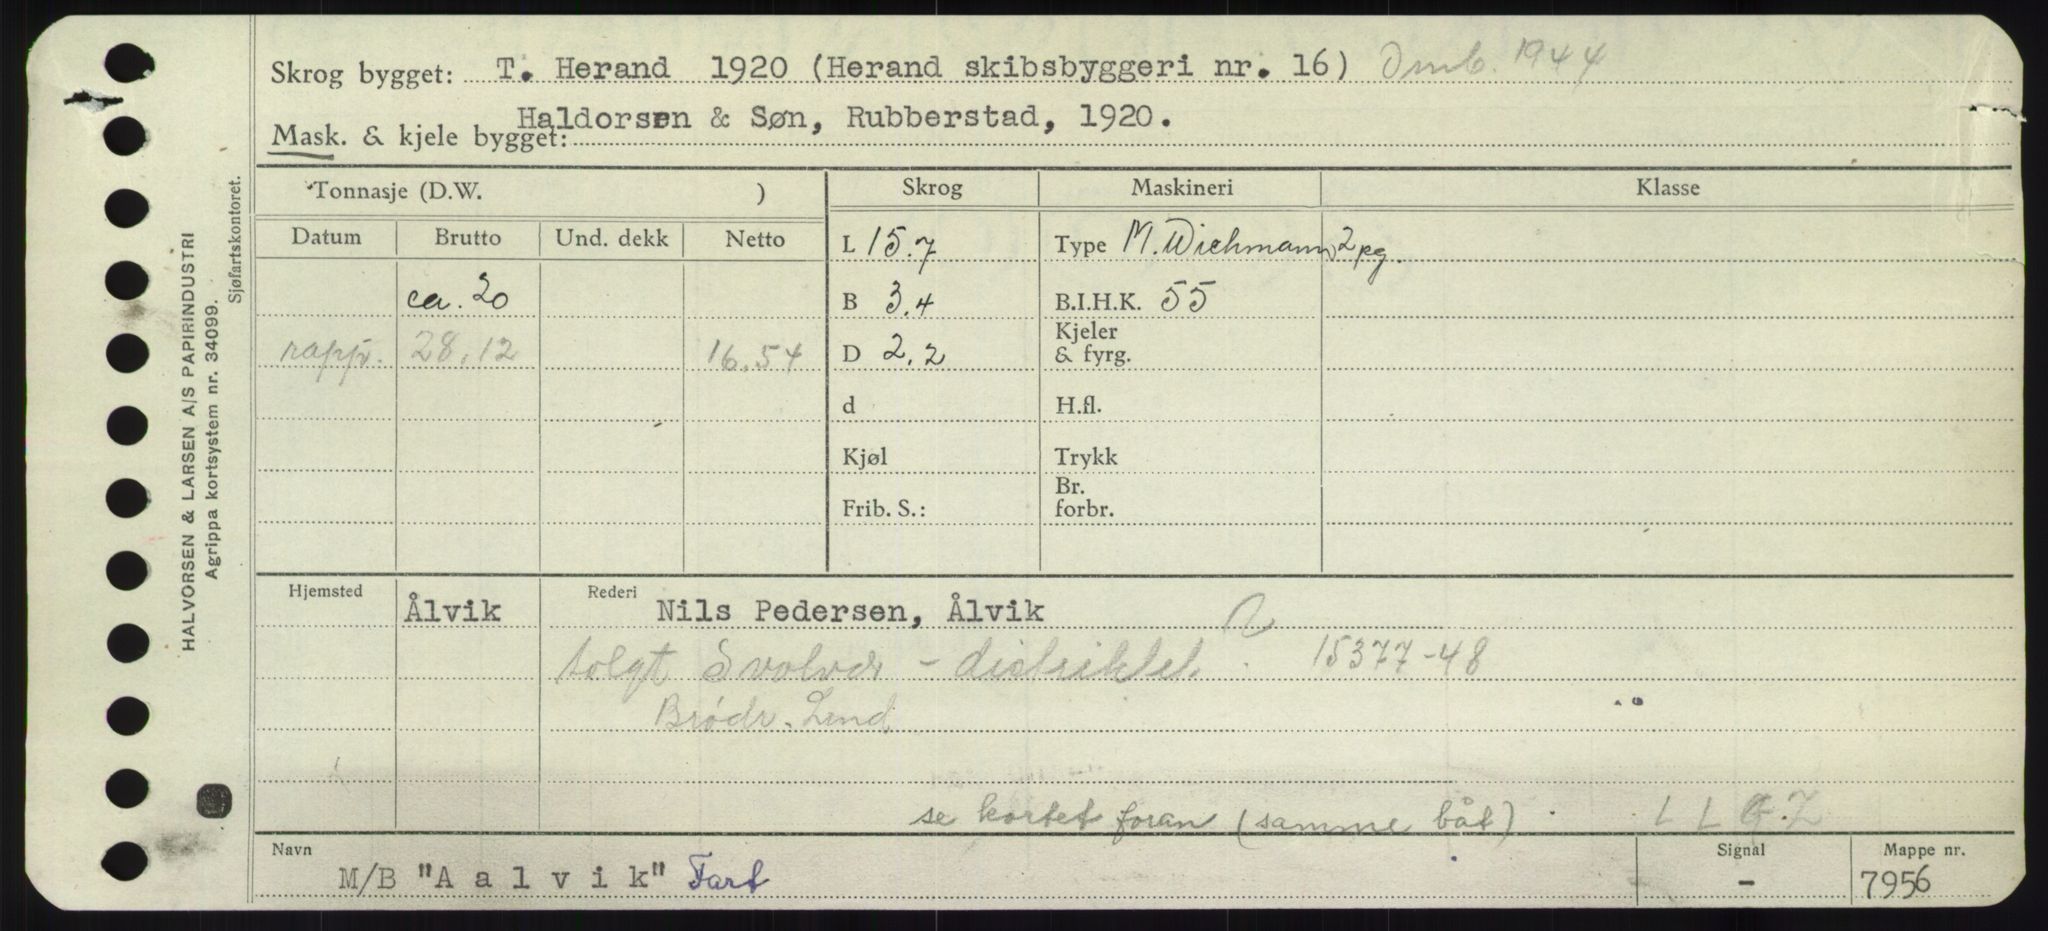 Skrog bygget: T. Herand 1920 (Herand skibsbyggeri nr. 16) Omb. 1944
Haldorsen & Søn, Rubberstad, 1920.
Mask. & kjele bygget:
Tonnasje (D.W. )
Skrog
Maskineri
Klasse
Datum
Brutto
Und. dekk
Netto
L 15.7
Type M. Wichmann 2 pg.
ca. 30
B 3.4
B.I.H.K. 55
rapp. 28,12 16.54
D 2.2
Kjeler
& fyrg.
d
H.fl.
Kjøl
Trykk
Frib. S.:
Br.
forbr.
Hjemsted
Ålvik
Rederi
Nils Pedersen, Ålvik
solgt Svolvær - distriktet. 15377-48
Brødr. Lund
se kortet foran (samme båt) . L L G Z
Navn
M/B "Aalvik" Fart
Signal
-
Mappe nr.
7956
HALVORSEN & LARSEN A/S PAPIRINDUSTRI
Agrippa kortsystem nr. 34099.
Sjøfartskontoret.